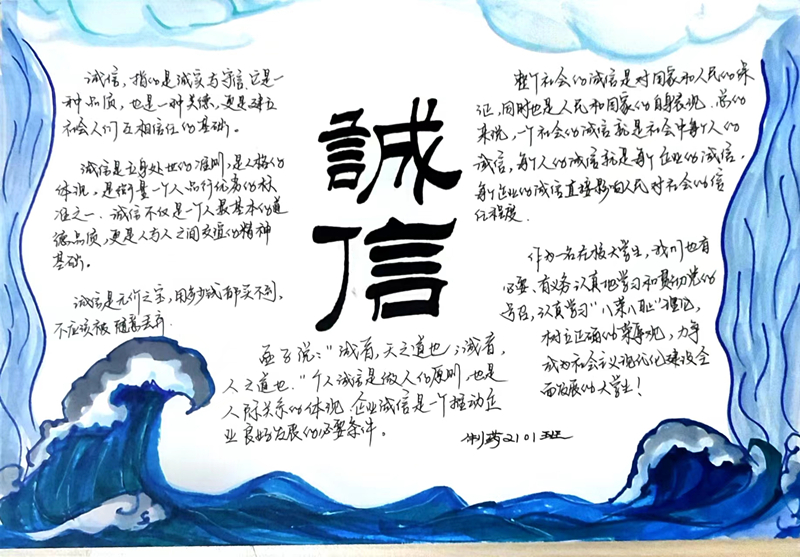 誠信
诚信，指的是诚实与守信它是一
种品质，也是一种美德，更是建立
社会人们互相信任的基础。
诚信是立身处世的准则，是人格的
体现，是衡量一个人品行优劣的标
准之一．诚信不仅是一个人最基本的道
德品质，更是人与人之间交谊的精神
基础。
诚信是无价之宝，用多少钱都买不到，
不应该被随意丢弃．
孟子说："诚者，天之道也；诚者，
人之道也．"个人诚信是做人的原则，也是
人际关系的体现．企业诚信是一个推动企
业良好发展的必要条件。
整个社会的诚信是对国家和人民的保
证，同时也是人民和国家的自身表现．总的
来说，一个社会的诚信就是社会中每个人的
诚信，每个人的诚信就是每个企业的诚信，
每个企业的诚信直接影响人民对社会的信
任程度．
作为一名在校大学生，我们也有
必要、有义务认真地学习和贯彻党的
号召，认真学习"八荣八耻"理论，
树立正确的荣辱观，力争
成为社会主义现代化建设全
面发展的大学生！
制药2101班